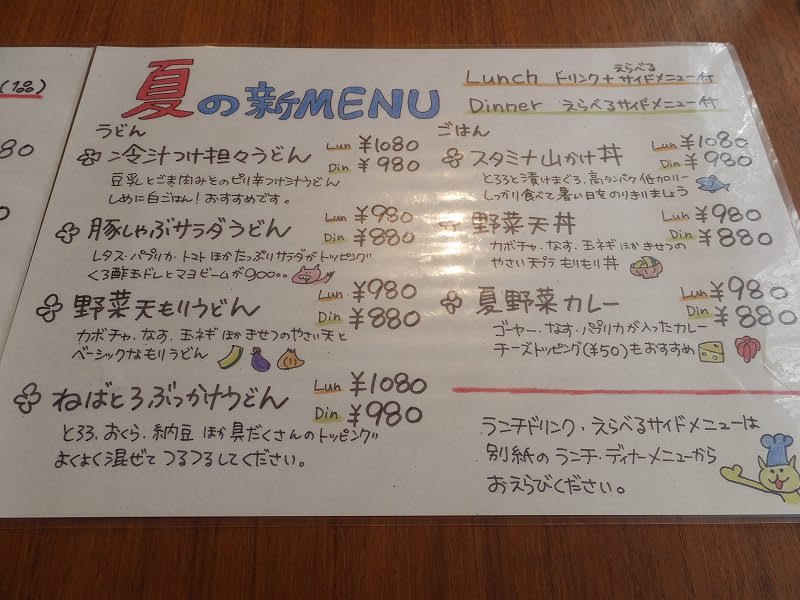 (1品)
80
0
夏の新MENU
えらべる
Lunch ドリンク+サイドメニュー付
Dinner えらべるサイドメニュー付
うどん
冷汁つけ担々うどん Lun ¥1080
Din ¥980
豆乳とごま肉みそのピリ辛つけ汁うどん
しめに白ごはん!おすすめです。
豚しゃぶサラダうどん Lun ¥980
Din ¥880
レタス・パプリカ・トマト ほか たっぷりサラダがトッピング
くろ酢玉ドレとマヨビームが900。。
野菜天もりうどん Lun ¥980
Din ¥880
カボチャ・なす・玉ネギ ほか きせつのやさい天と
ベーシックなもりうどん
ねばとろぶっかけうどん Lun ¥1080
Din ¥980
とろろ・おくら・納豆 ほか 具だくさんのトッピング
よくよく混ぜて つるつるしてください。
ごはん
スタミナ山かけ丼 Lun ¥1080
Din ¥980
とろろと漬けまぐろ、高タンパク低カロリー
しっかり食べて暑い日をのりきりましょう
野菜天丼 Lun ¥980
Din ¥880
カボチャ、なす、玉ネギ ほか きせつの
やさい天プラ もりもり丼
夏野菜カレー Lun ¥980
Din ¥880
ゴーヤー、なす、パプリカが入ったカレー
チーズトッピング(¥50)もおすすめ
ランチドリンク・えらべるサイドメニューは
別紙のランチ・ディナーメニューから
おえらびください。